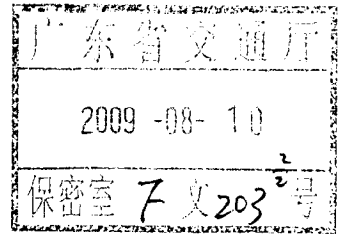 广东省交通厅
2009 -08- 10
保密室 文203 2/2 号